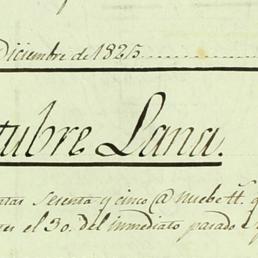 Diciembre de 1825
ctubre Lana.
ntas sesenta y cinco @ nuebe
el 30. del inmediato pasado